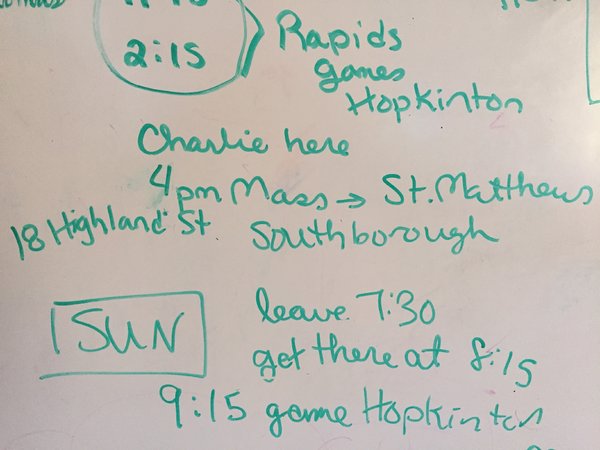 2:15 Rapids
games
Hopkinton
Charlie here
4pm Mass → St. Matthews
18 Highland St Southborough
SUN leave 7:30
get there at 8:15
9:15 game Hopkinton